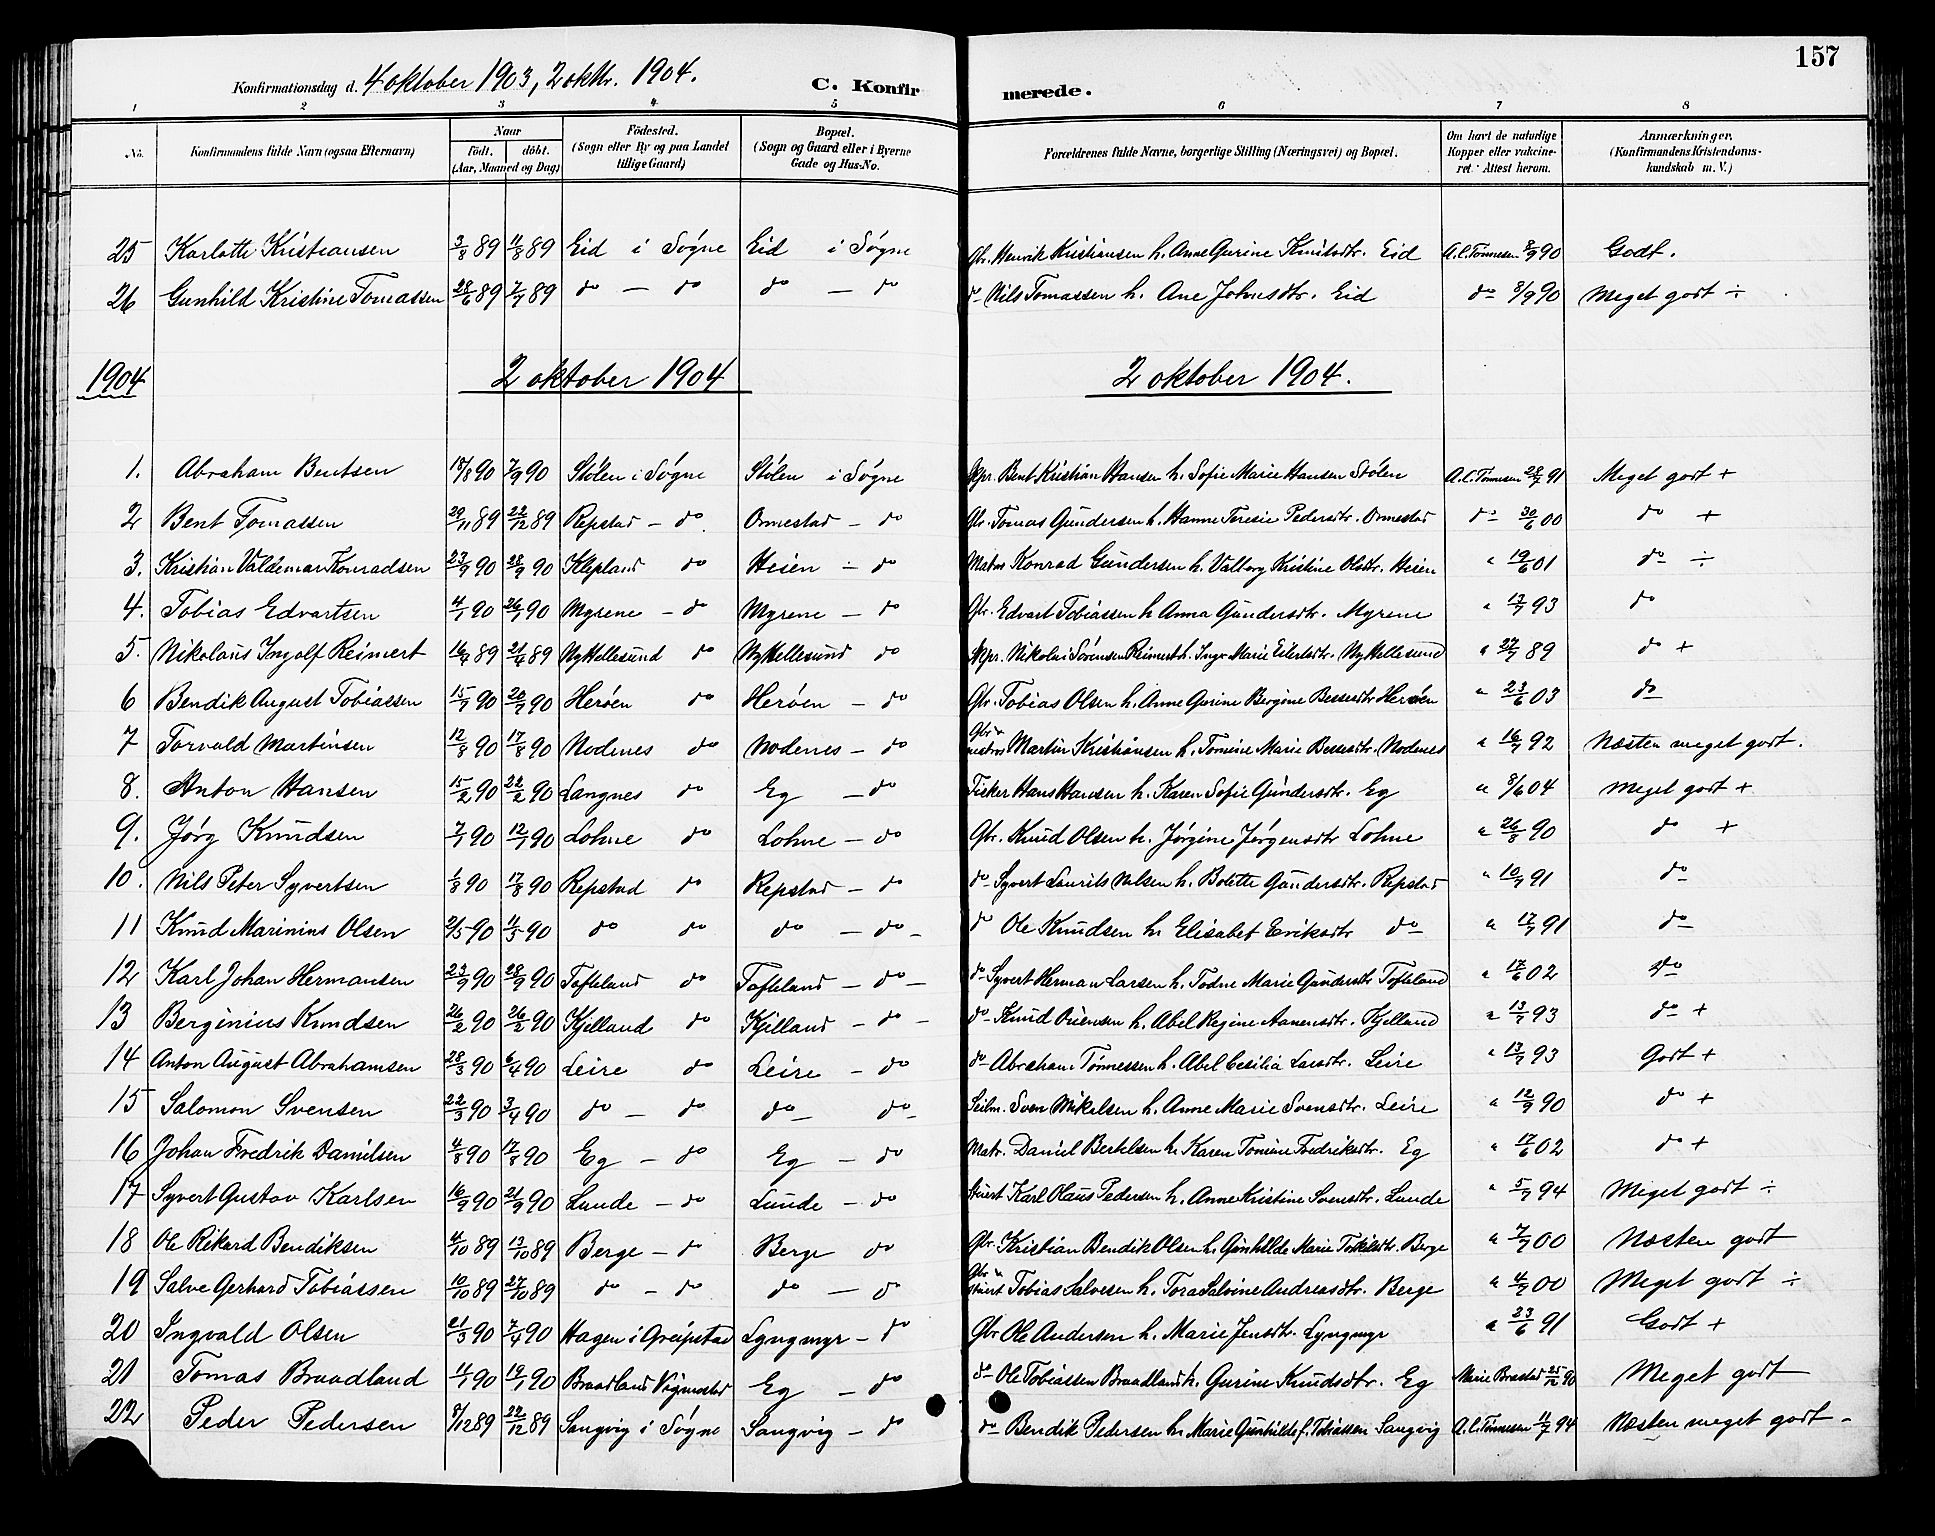 157
Konfirmationsdag d. 4 oktober 1903, 2 oktbr. 1904. C. Konfirmerede.
1 2 3 4. 5 6 7 8
No. Konfirmandens fulde Navn (ogsaa Efternavn) Naar Födt. döbt. (Aar, Maaned og Dag) Födested. (Sogn eller By og paa Landet tillige Gaard) Bopæl. (Sogn og Gaard eller i Byerne Gade og Hus-No. Forældrenes fulde Navne, borgerlige Stilling (Næringsvei) og Bopæl. Om havt de naturlige Kopper eller vakcineret. Attest herom. Anmærkninger. (Konfirmandens Kristendomskundskab m. V.)
25 Karlotte Kristiansen 3/8 89 11/8 89 Eid i Søgne Eid i Søgne Gbr. Henrik Kristiansen h. Anne Gurine Knudsdtr. Eid A. C. Tønnesen 8/9 90 Godt.
26 Gunhild Kristine Tomassen 28/6 89 7/7 89 do — do do — do do Nils Tomassen h. Ane Johnsdtr. Eid do 8/9 90 Meget godt ÷
1904 2 oktober 1904 2 oktober 1904.
1. Abraham Bentsen 18/8 90 7/9 90 Stølen i Søgne Stølen i Søgne Skpr. Bent Kristian Hansen h. Sofie Marie Hansen Stølen A. C. Tønnesen 28/7 91 Meget godt +
2 Bent Tomassen 29/11 89 22/12 89 Repstad — do Ormestad — do Gbr. Tomas Gundersen h. Hanne Teresie Pedersdtr. Ormestad do 30/6 00 do +
3. Kristian Valdemar Konradsen 23/9 90 28/9 90 Klepland do Heien — do Matros Konrad Gundersen h. Valborg Kristine Olsdtr. Heien " 19/6 01 do ÷
4. Tobias Edvartsen 4/1 90 26/1 90 Myrene — do Myrene — do Gbr. Edvart Tobiassen h. Anna Gundersdtr. Myrene " 13/7 93 do
5. Nikolaus Ingolf Reimert 16/4 89 21/4 89 Ny Hellesund do Ny Hellesund do Skpr. Nikolai Sørensen Reimert h. Inger Marie Eilertsdtr. Ny Hellesund " 27/7 89 do +
6 Bendik August Tobiassen 15/7 90 20/7 90 Herøen do Herøen — do Gbr. Tobias Olsen h. Anne Gurine Bergine Bessesdtr Herøen " 23/6 03 do
7 Torvald Martinsen 12/8 90 17/8 90 Nodenes do Nodenes — do Gbr & matros Martin Kristiansen h. Tomine Marie Bessesdtr. Nodenes " 16/7 92 Næsten meget godt.
8. Anton Hansen 15/2 90 22/2 90 Langnes do Eg — do Fisker Hans Hansen h. Karen Sofie Gundersdtr. Eg " 8/6 04 Meget godt +
9. Jørg Knudsen 7/1 90 12/1 90 Lohne do Lohne — do Gbr. Knud Olsen h. Jørgine Jørgensdtr Lohne " 26/8 90 do +
10. Nils Peter Syvertsen 1/8 90 17/8 90 Repstad do Repstad — do do Syvert Laurits Nilsen h. Bolette Gundersdtr. Repstad " 10/7 91 do
11 Knud Marinius Olsen 2/5 90 11/5 90 do do do — do do Ole Knudsen h. Elisabet Eriksdtr do " 17/7 91 do
12 Karl Johan Hermansen 23/9 90 28/9 90 Tofteland do Tofteland — do do Syvert Herman Larsen h. Todne Marie Gundersdtr Tofteland " 17/6 02 do
13 Berginius Knudsen 26/2 90 26/2 90 Kjelland do Kjelland — do do Knud Oriensen h. Abel Regine Aanensdtr. Kjelland " 13/7 93 do +
14 Anton August Abrahamsen 28/3 90 6/4 90 Leire do Leire — do do Abraham Tønnessen h. Abel Cesilia Larsdtr. Leire " 13/7 93 Godt +
15 Salomon Svensen 22/3 90 3/4 90 do — do do do Seilm. Sven Mikelsen h. Anne Marie Svensdtr. Leire " 12/9 90 do +
16 Johan Fredrik Danilsen 4/8 90 17/8 90 Eg — do Eg — do Matr. Daniel Bertelsen h. Karen Tomine Fredriksdtr. Eg " 17/6 02 do +
17 Syvert Gustav Karlsen 16/9 90 21/9 90 Lunde — do Lunde — do Stuert Karl Olaus Pedersen h. Anne Kristine Svensdtr. Lunde " 5/7 94 Meget godt ÷
18 Ole Rikard Bendiksen 4/10 89 13/10 89 Berge — do Berge do Gbr. Kristian Bendik Olsen h. Gunhilde Marie Torkilsdtr. Berge " 7/7 00 Næsten godt
19 Salve Gerhard Tobiassen 10/10 89 27/10 89 do — do do — do Gbr & stuert Tobias Salvesen h. Tora Salvine Andreasdtr. Berge " 4/7 00 Meget godt ÷
20 Ingvald Olsen 21/3 90 7/4 90 Hagen i Greipstad Lyngmyr — do Gbr Ole Andersen h. Marie Jensdtr. Lyngmyr " 23/6 91 Godt +
21 Tomas Braadland 1/1 90 19/1 90 Braadland Vigmostad Eg — do do Ole Tobiassen Braadland h. Gurine Knudsdtr. Eg Marie Brastad 25/12 90 Meget godt
22 Peder Pedersen 8/12 89 22/12 89 Sangvig i Søgne Sangvig — do do Bendik Pedersen h. Marie Gunhilde f. Tobiassen Sangvig A. C. Tønnesen 11/7 94 Næsten meget godt —